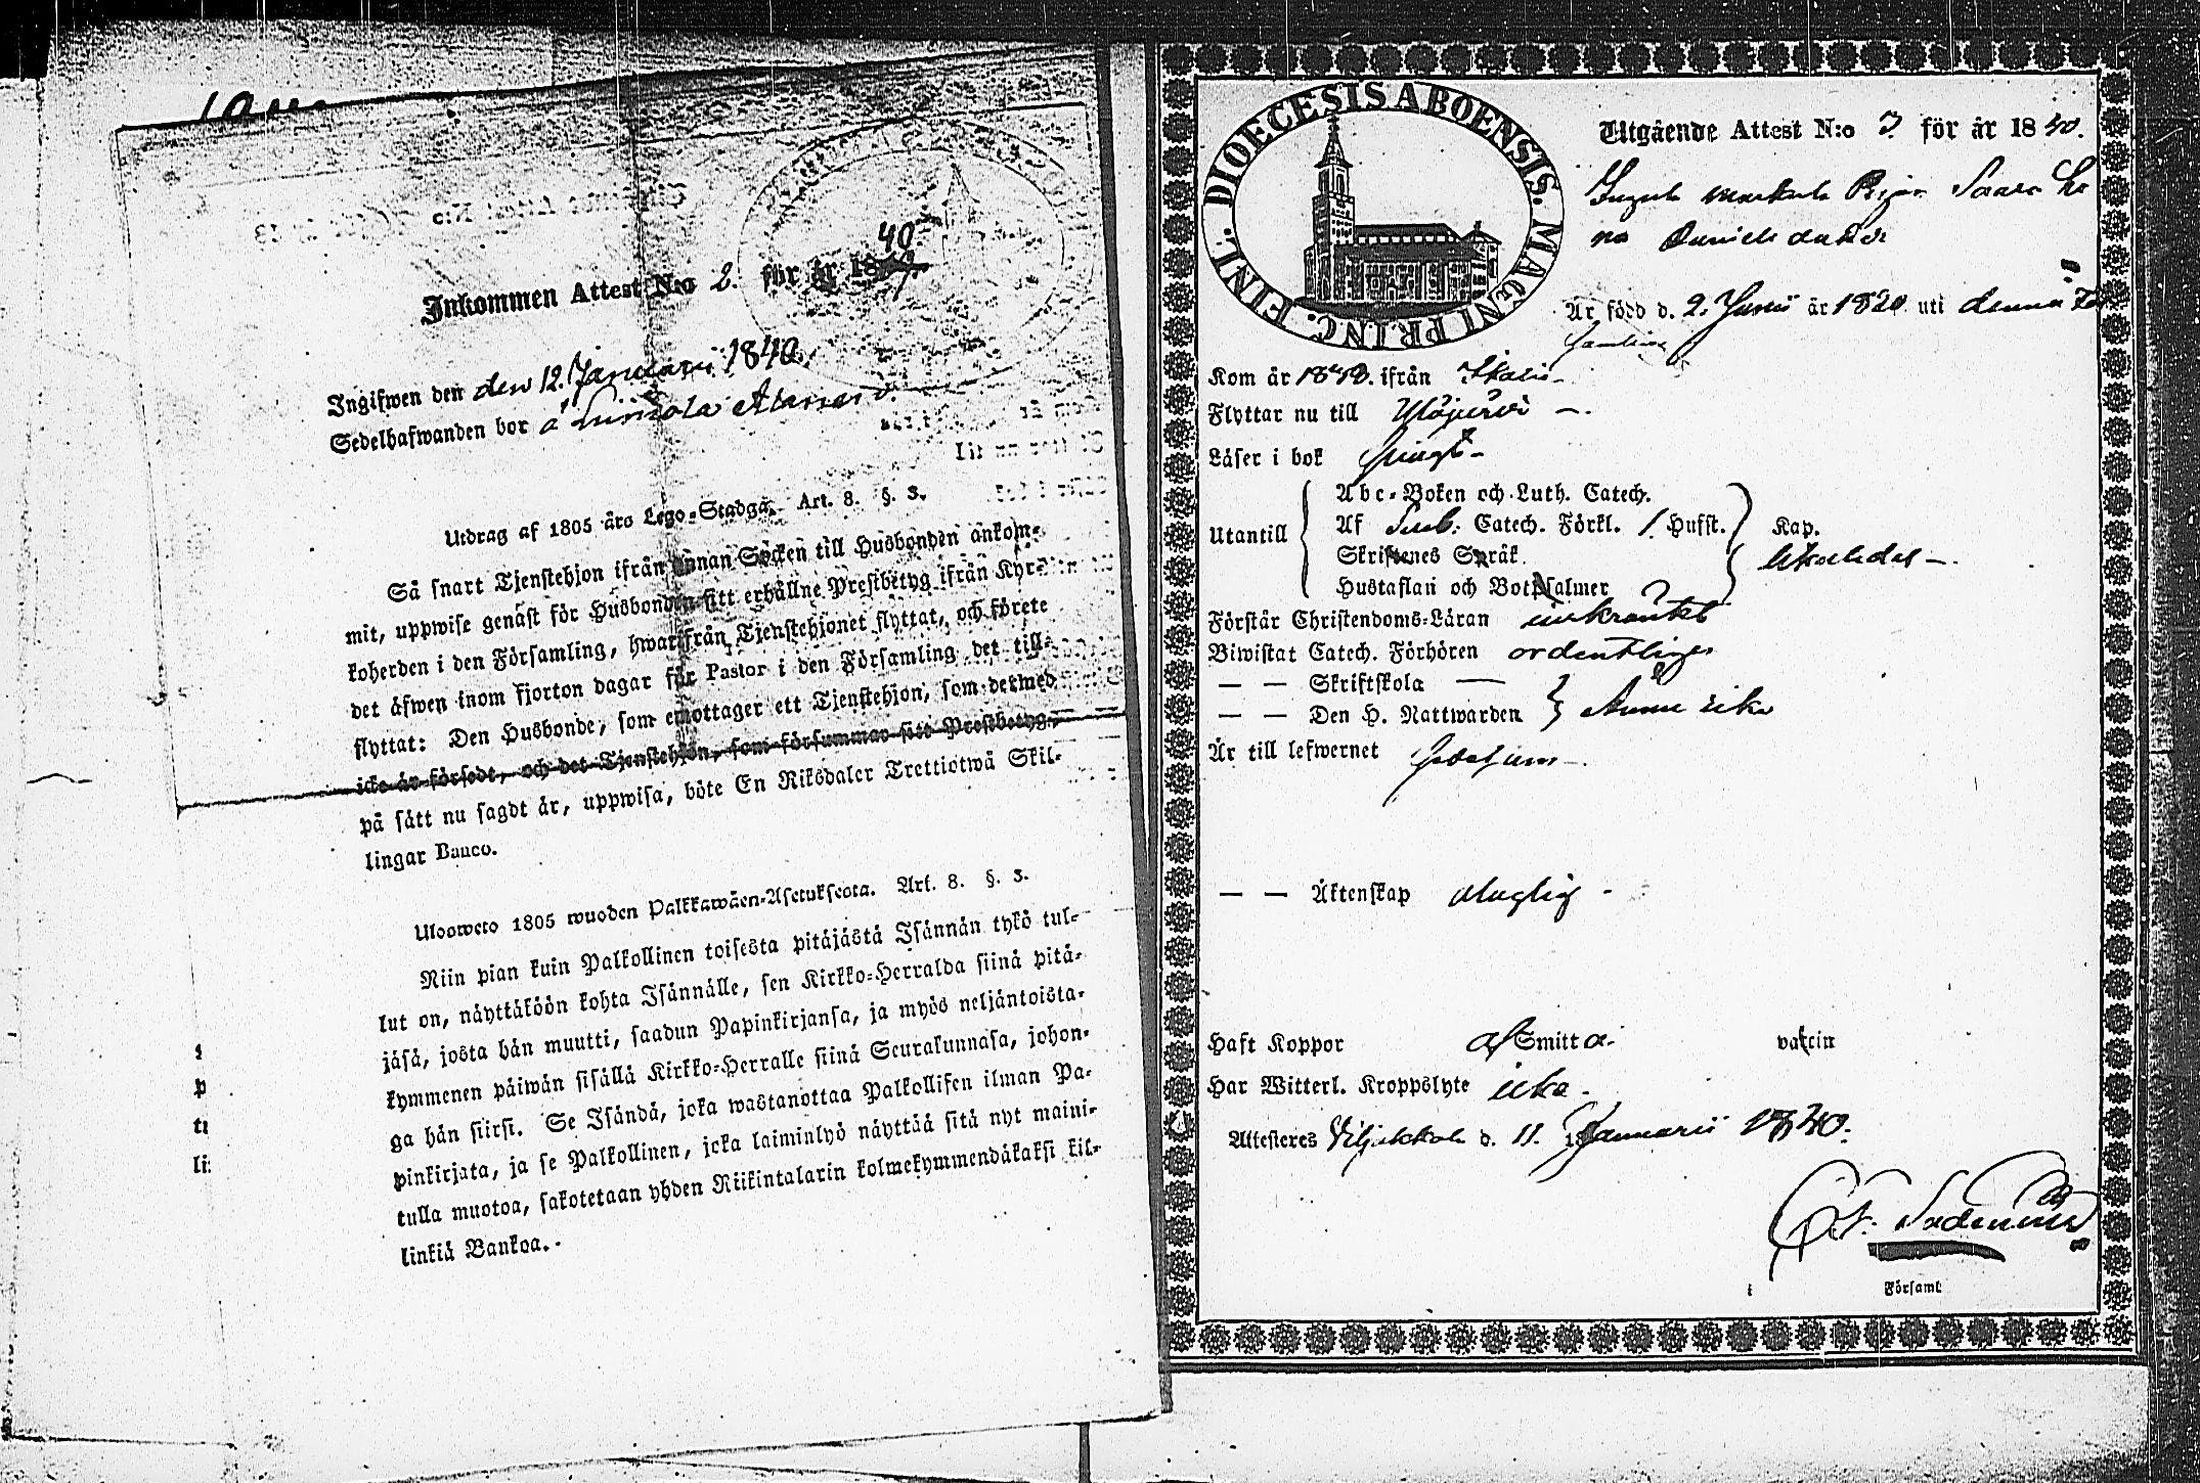 Inkommen Attest N:o 2. för år 1840
Ingifwen den den 12. Januarii 1840.
Sedelhafwanden bor å
Utdrag af 1805 års Lego-Stadga. Art. 8. §. 3.
Så snart Tjenstehjon ifrån annan Socken till Husbonden ankom-
mit, uppwise genast för Husbonden sitt erhållne Prestbetyg ifrån Kyr-
koherden i den Församling, hwarifrån Tjenstehjonet flyttat, och förete
det äfwen inom fjorton dagar för Pastor i den Församling det till-
flyttat: Den Husbonde, som emottager ett Tjenstehjon, som dermed
icke är försedt, och det Tjenstehjon, som försummar sitt Prestbetyg,
på sätt nu sagdt är, uppwisa, böte En Riksdaler Trettiotwå Skil-
lingar Banco.
Uloswето 1805 wuoden Palkkawäen-Asetuksesta. Art. 8. §. 3.
Niin pian kuin Palkollinen toisesta pitäjästä Isännän tykö tul-
lut on, näyttäköön kohta Isännälle, sen Kirkko-Herralda siinä pitä-
jäsä, josta hän muutti, saadun Papinkirjansa, ja myös neljäntoista-
kymmenen päiwän sisällä Kirkko-Herralle siinä Seurakunnasa, johon-
ga hän siirsi. Se Isändä, joka wastanottaa Palkollisen ilman Pa-
pinkirjata, ja se Palkollinen, joka laiminlyö näyttää sitä nyt maini-
tulla muotoa, sakotetaan yhden Riikintalarin kolmekymmendäkaksi kil-
linkiä Bankoa.
DIOECESIS ABOENSIS. MAGNI PRINC. FINL.
Utgående Attest N:o 3 för år 1840.
Pigan Saara
Danielsdotter
Är född d. 2. Junii år 1820 uti denna
Kom år 18 ifrån Ikalis
Flyttar nu till Ylöjärvi
Läser i bok
Abc-Boken och Luth. Catech.
Utantill Af Catech. Förkl. 1. Hufst. Kap.
Skriftenes Språk
Hustaflan och Botpsalmer
Förstår Christendoms-Läran
Biwistat Catech. Förhören ordentligen
— — Skriftskola —
— — Den H. Nattwarden
Är till lefwernet
— — Äktenskap
Haft Koppor af Smitta vaccin
Har Witterl. Kroppslyte icke
Attesteres Viljakkala d. 11. Januarii 1840.
Församl